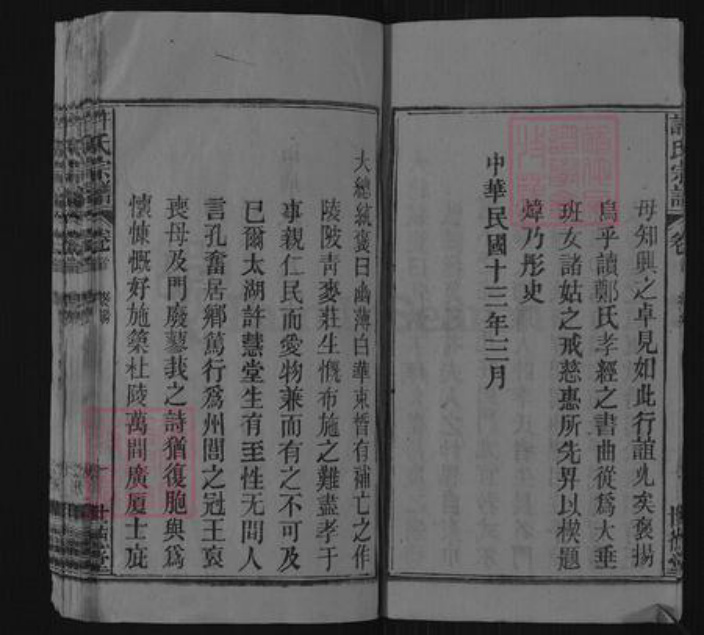 許氏宗譜
卷首
母知興之卓見如此行誼尤矣褒揚
烏乎讀鄭氏孝經之書曲從為大垂
班女諸姑之戒慈惠所先畀以楔題
煒乃彤史
中華民國十三年三月
大總統褒曰幽薄白華束晳有補亡之作
陵陂青麥莊生慨布施之難盡孝于
事親仁民而愛物兼而有之不可及
已爾太湖許慧堂生有至性无間人
言孔奮居鄉篤行為州閭之冠王裒
喪母及門廢蓼莪之詩猶復胞與為
懷慷慨好施築杜陵萬間廣廈士庇
氏宗譜